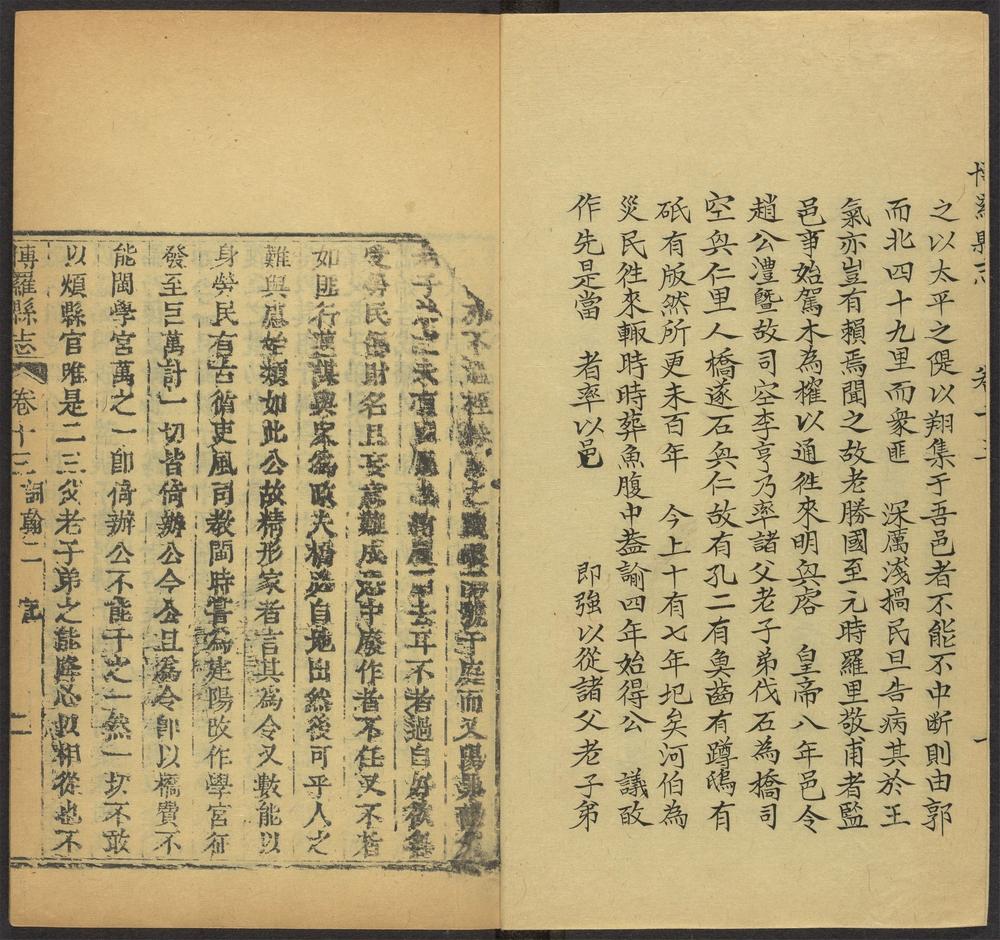 博羅縣志 卷十三 一
之以太平之隄以翔集于吾邑者不能不中断則由郭
而北四十九里而衆匪 深厲淺揭民旦告病其於王
氣亦豈有賴焉聞之故老勝國至元時羅里敬甫者監
邑事始駕木為權以通徃來明與 皇帝八年邑令
趙公澧暨故司空李亨乃率諸父老子弟伐石為橋司
空與仁里人橋遂石與仁故有孔二有魚齒有蹲鴟有
砥有版然所更未百年 今上十有七年圯矣河伯為
災民徃來輙時時葬魚腹中葢諭四年始得公 議改
作先是當 者率以邑 即強以從諸父老子弟
不 之 號于庭而又陽 
子 去耳不者過自
勞民傷財名且妄意難成忌中廢作者不任又不者
如匪行邁謀與家為政大橋必自地出然後可乎人之
難與慮始類如此公故精形家者言其為令又數能以
身勞民有古循吏風司教閩時嘗為建陽改作學宮征
發至巨萬計一切皆倚辦公今公且為令卽以橋費不
能閩學宮萬之一卽倚辦公不能千之一然一切不敢
以煩縣官唯是二三父老子弟之能降心以相從也不
博羅縣志 卷十三 詞翰二 記 二